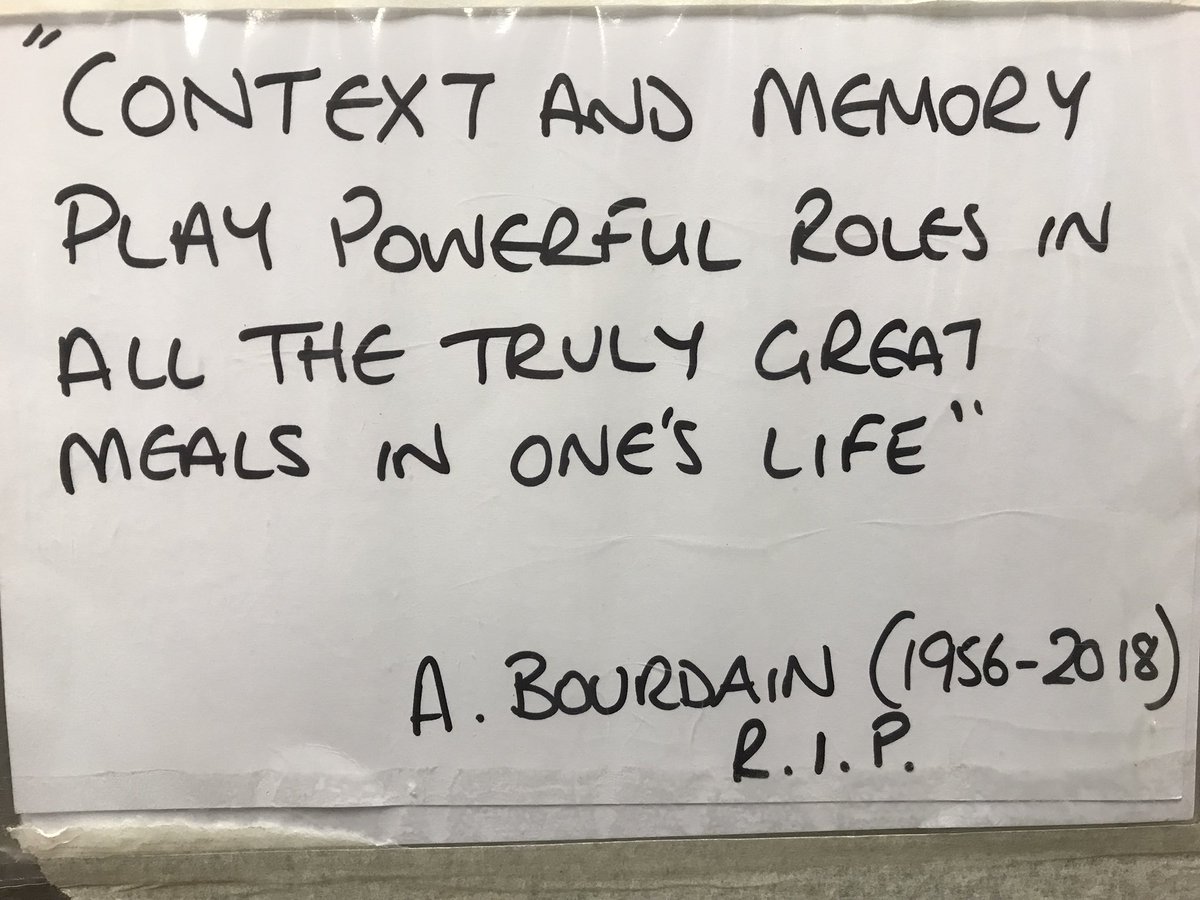 "CONTEXT AND MEMORY
PLAY POWERFUL ROLES IN
ALL THE TRULY GREAT
MEALS IN ONE'S LIFE"
A. BOURDAIN (1956-2018)
R.I.P.